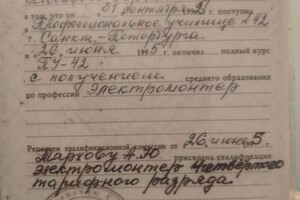 в том, что он 01 сентября 1992 г. поступил
Профессиональное училище №42
Санкт-Петербурга
26 июня 1995 г. окончил полный курс
ПУ-42
с получением среднего образования
по профессии электромонтер
Решением квалификационной комиссии от 26 июня 1995
Маркову А.Ю присвоена квалификация
электромонтер четвертого
тарифного разряда